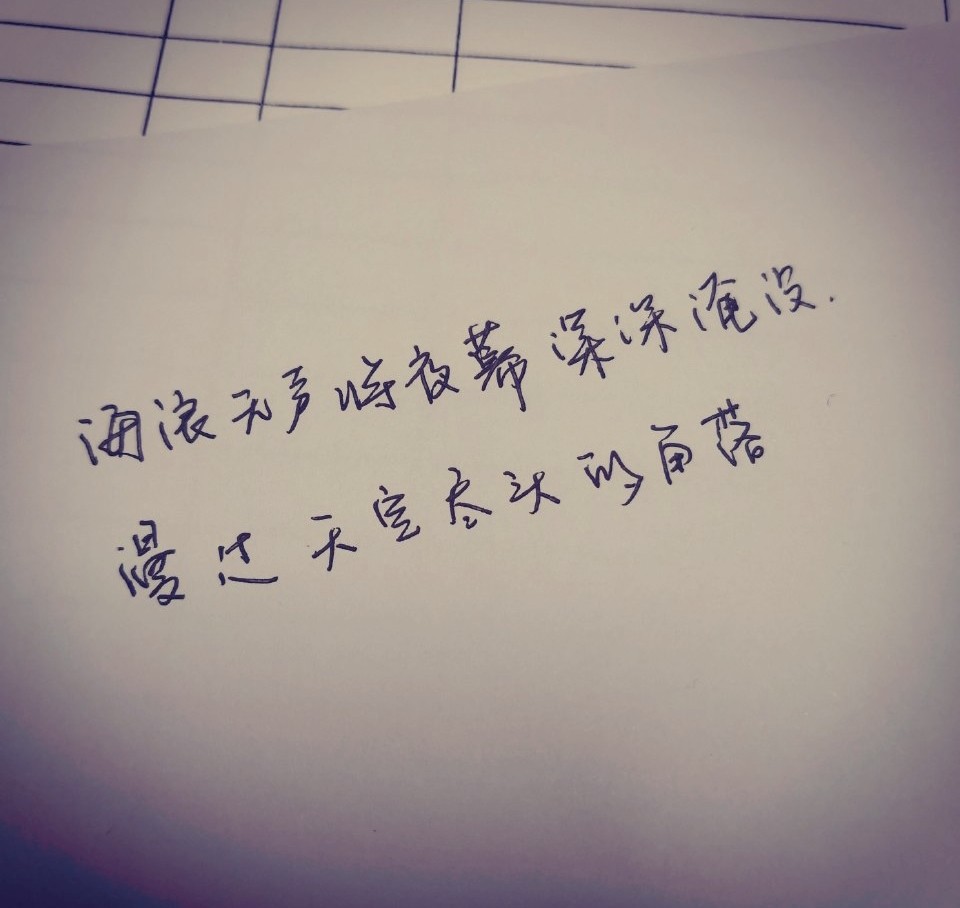 海浪无声将夜幕深深淹没.
漫过天空尽头的角落